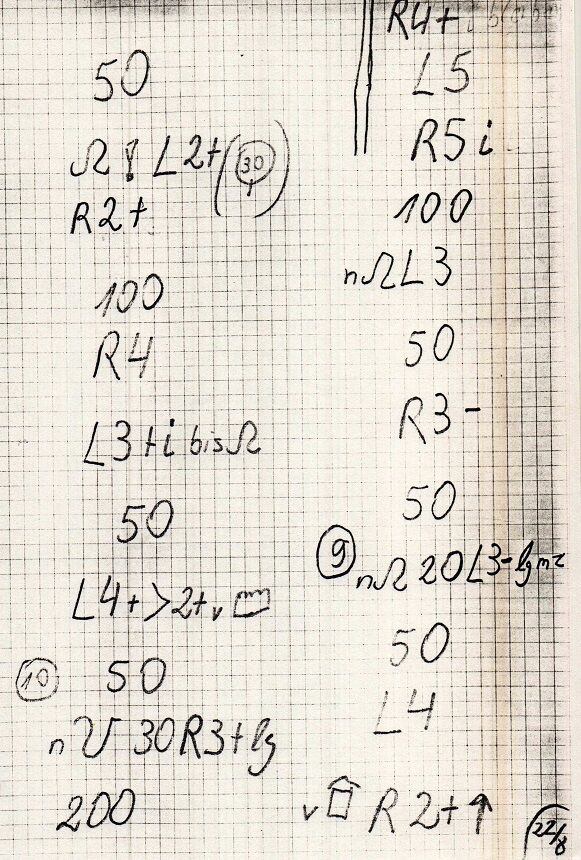 50
Ω L2+ (30)
R2+
100
R4
L3+i bis Ω
50
L4+ > 2+ v
10
50
n ℧ 30 R3+ lg
200
R4+ i
L5
R5 i
100
nΩ L3
50
R3-
50
9
nΩ 20 L3- lg mz
50
L4
v R 2+ ↑
22/8